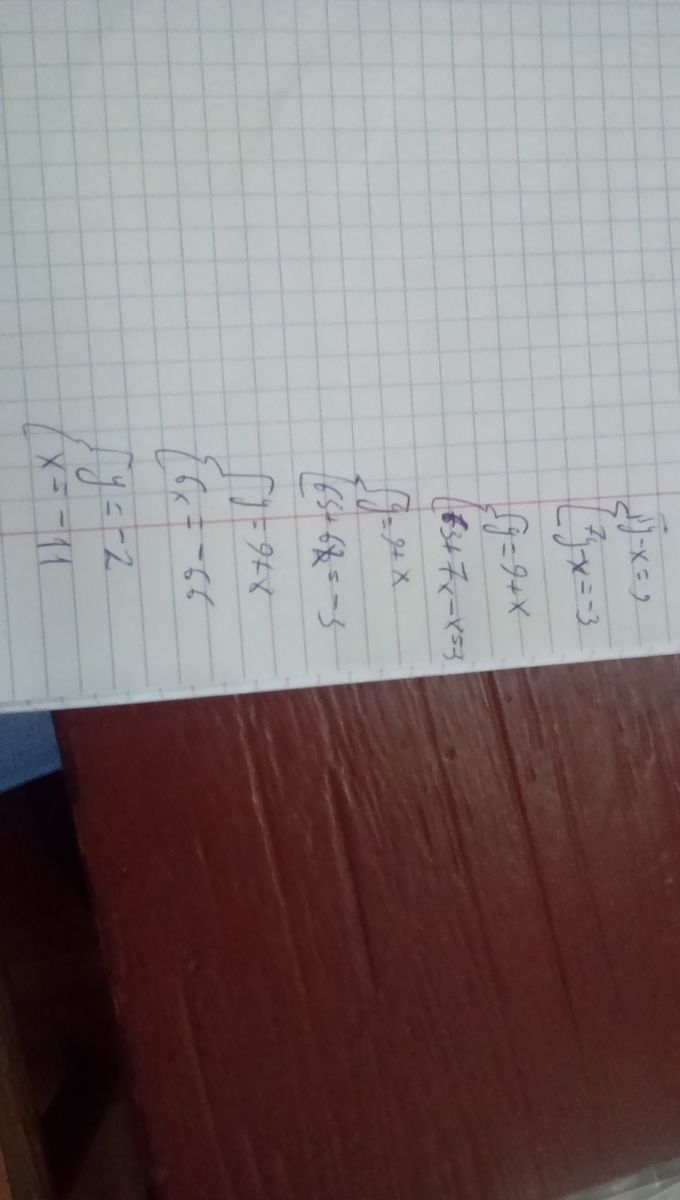 y-x=9
7y-x=-3
y=9+x
63+7x-x=3
y=9+x
63+6x=-3
y=9+x
6x=-66
y=-2
x=-11